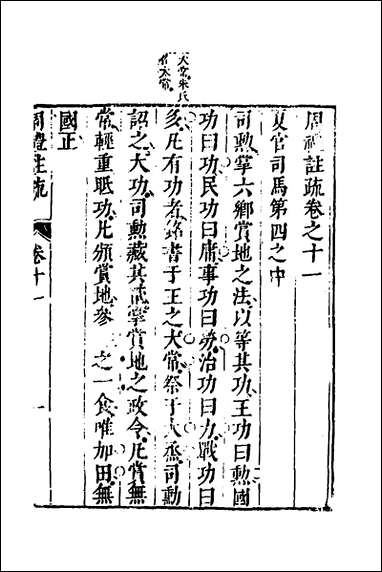 周禮註疏卷之十一
夏官司馬第四之中
司勳掌六鄉賞地之法以等其功王功曰勳國
功曰功民功曰庸事功曰勞治功曰力戰功曰
多凡有功者銘書于王之大常祭于大烝司勳
詔之大功司勳藏其貳掌賞地之政令凡賞無
常輕重眡功凡頒賞地參之一食唯加田無
國正
大常朱氏
作太常
周禮註疏
卷十一
一